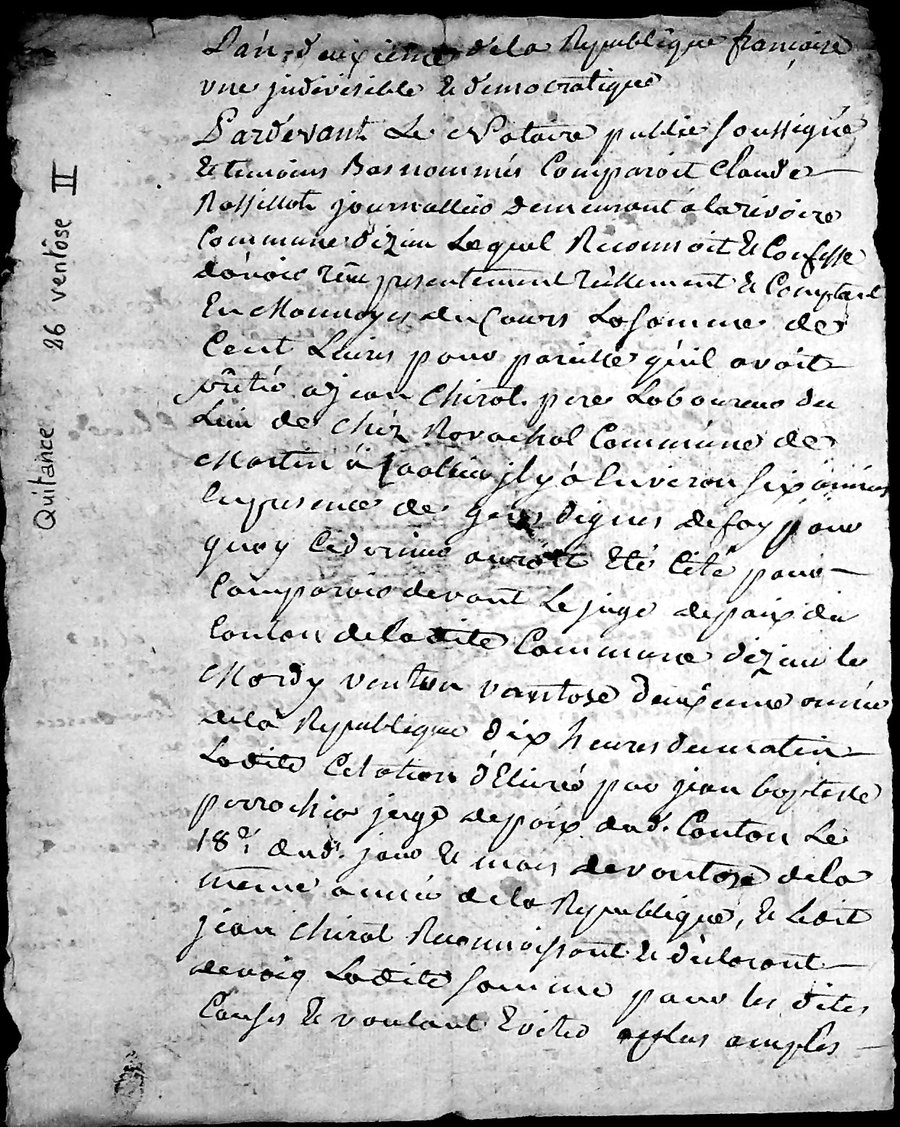 Quitance 26 ventôse II
L'an deuxieme de la Republique françoise
une jndivisible & democratique
Pardevant Le Notaire public soussigné
& temoins Basnommés Comparoit Claude
Rossillon journallier demeurant à la rivoire
Commune dizieu Lequel Reconnoit & Confesse
d'avoir reçu presentement réellement & Comptant
En Monnoyes du Cours La somme de
Cent Livres pour pareille qu'il avoit
prêté à jean Chirol pere Laboureur du
Lieu de Chéz Rovachol Commune de
Martin à jl y à Environ six années
En presence de gens dignes de foy pour
quoy Ce dernier auroit Eté Cité pour
Comparoir devant Le juge de paix du
Conton de la dite Commune dizieu le
Mardy vantose deuxieme année
de la Republique dix heures du matin
Ladite Citation délivré par jean baptiste
perrochia juge de paix dud. Conton Le
18e. dud. jour & mois de vantose de la
même année de la Republique, & Ledit
jean Chirol Reconnoissant & déclarant
devoir Ladite somme pour les dites
Causes & voulant Eviter plus amples